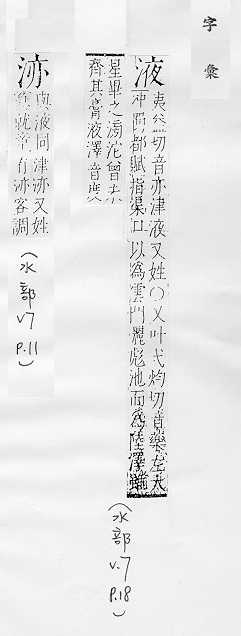 字彙
液
夷益切音亦津液又姓○又叶弋灼切音藥左太
冲蜀都賦指渠口以為雲門灑滮池而為陸澤雖
星畢之滂沱曾未
齊其膏液澤音
(水部 v.7 P.18)
洂
與液同津洂又姓
有洂客調
(水部 v.7 P.11)